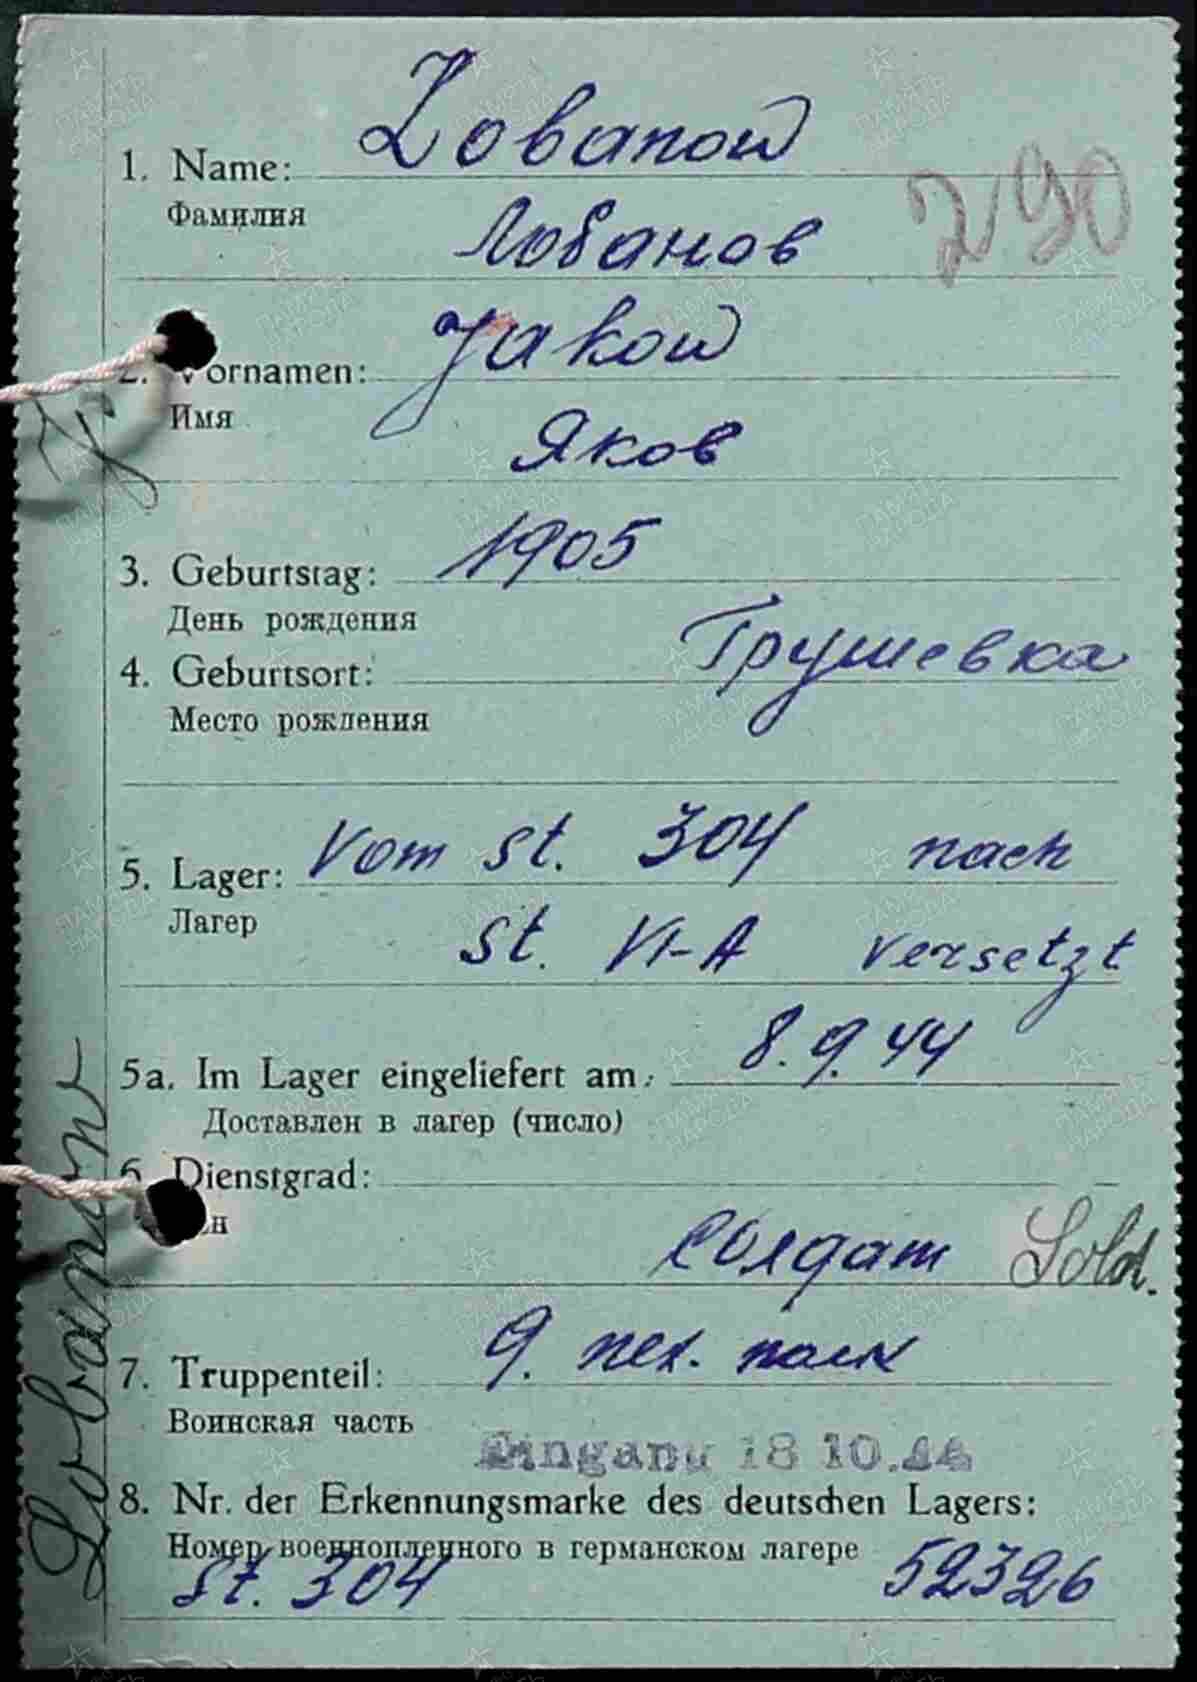 Lobanow
1. Name:
Фамилия
Лобанов
290
Jakow
2. Vornamen:
Имя
Яков
1905
3. Geburtstag:
День рождения
Грушевка
4. Geburtsort:
Место рождения
Vom St. 304 nach
5. Lager:
Лагер
St. VI-A versetzt
8.9.44
5a. Im Lager eingeliefert am:
Доставлен в лагер (число)
6. Dienstgrad:
Солдат Sold.
9. пех. полк
7. Truppenteil:
Воинская часть
Eingang 18 10.44
8. Nr. der Erkennungsmarke des deutschen Lagers:
Номер военнопленного в германском лагере
St. 304 52326
Lobanow
ПАМЯТЬ НАРОДА